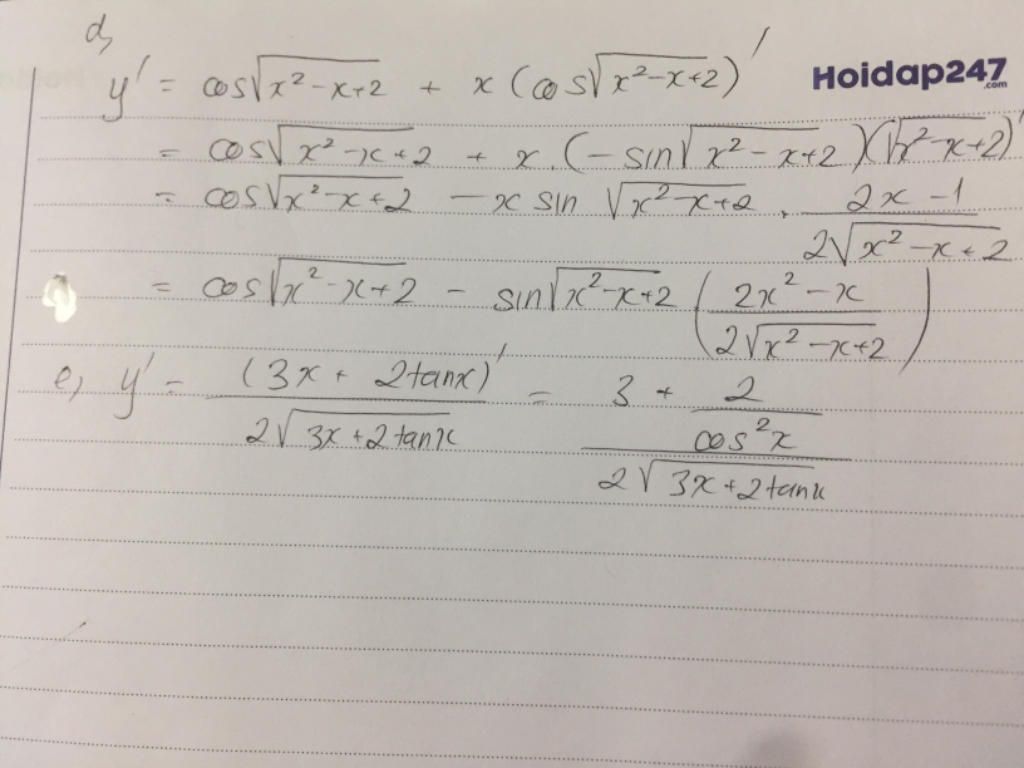 d,
y' = cos√(x²-x+2) + x (cos√(x²-x+2))'
Hoidap247
.com
= cos√(x²-x+2) + x.(-sin√(x²-x+2))(√(x²-x+2))'
= cos√(x²-x+2) - x sin √(x²-x+2) . (2x-1)/(2√(x²-x+2))
= cos√(x²-x+2) - sin√(x²-x+2) ((2x²-x)/(2√(x²-x+2)))
e, y' = (3x + 2tanx)'/(2√(3x+2tanx)) = (3 + 2/cos²x)/(2√(3x+2tanx))